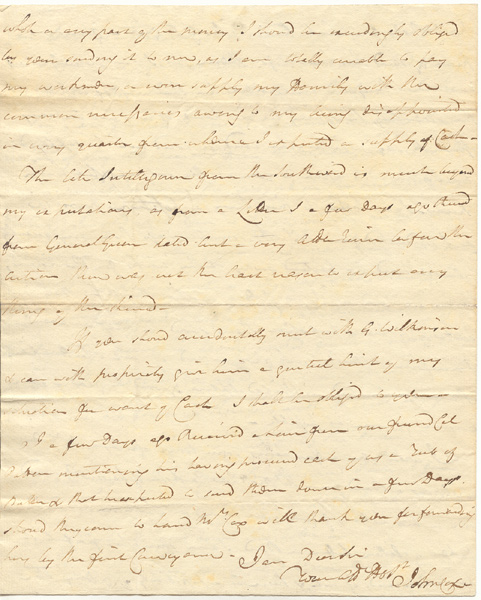 whole or any part of the money I should be exceedingly obliged
by your sending it to me, as I am totally unable to pay
my workmen, or even supply my Family with the
common necessaries owing to my being disappointed
in every quarter from whence I expected a supply of Cash—
The late Intelligence from the Southward is much beyond
my expectations as from a Letter I a few Days ago Rec'd
from General Green dated but a very little time before the
action there was not the least reason to expect any
thing of the kind—
If you should accidentally meet with G. Wilkinson
& can with propriety give him a genteel hint of my
situation for want of Cash I shall be obliged to you—
I a few Days ago Received a Line from our friend Col
mentioning his having procured each of us a
& that he expected to send them down in a few Days.
should they come to hand Mrs Cox will thank you for forwarding
hers by the first Conveyance— I am Dear Sir
Your Hble
John Cox